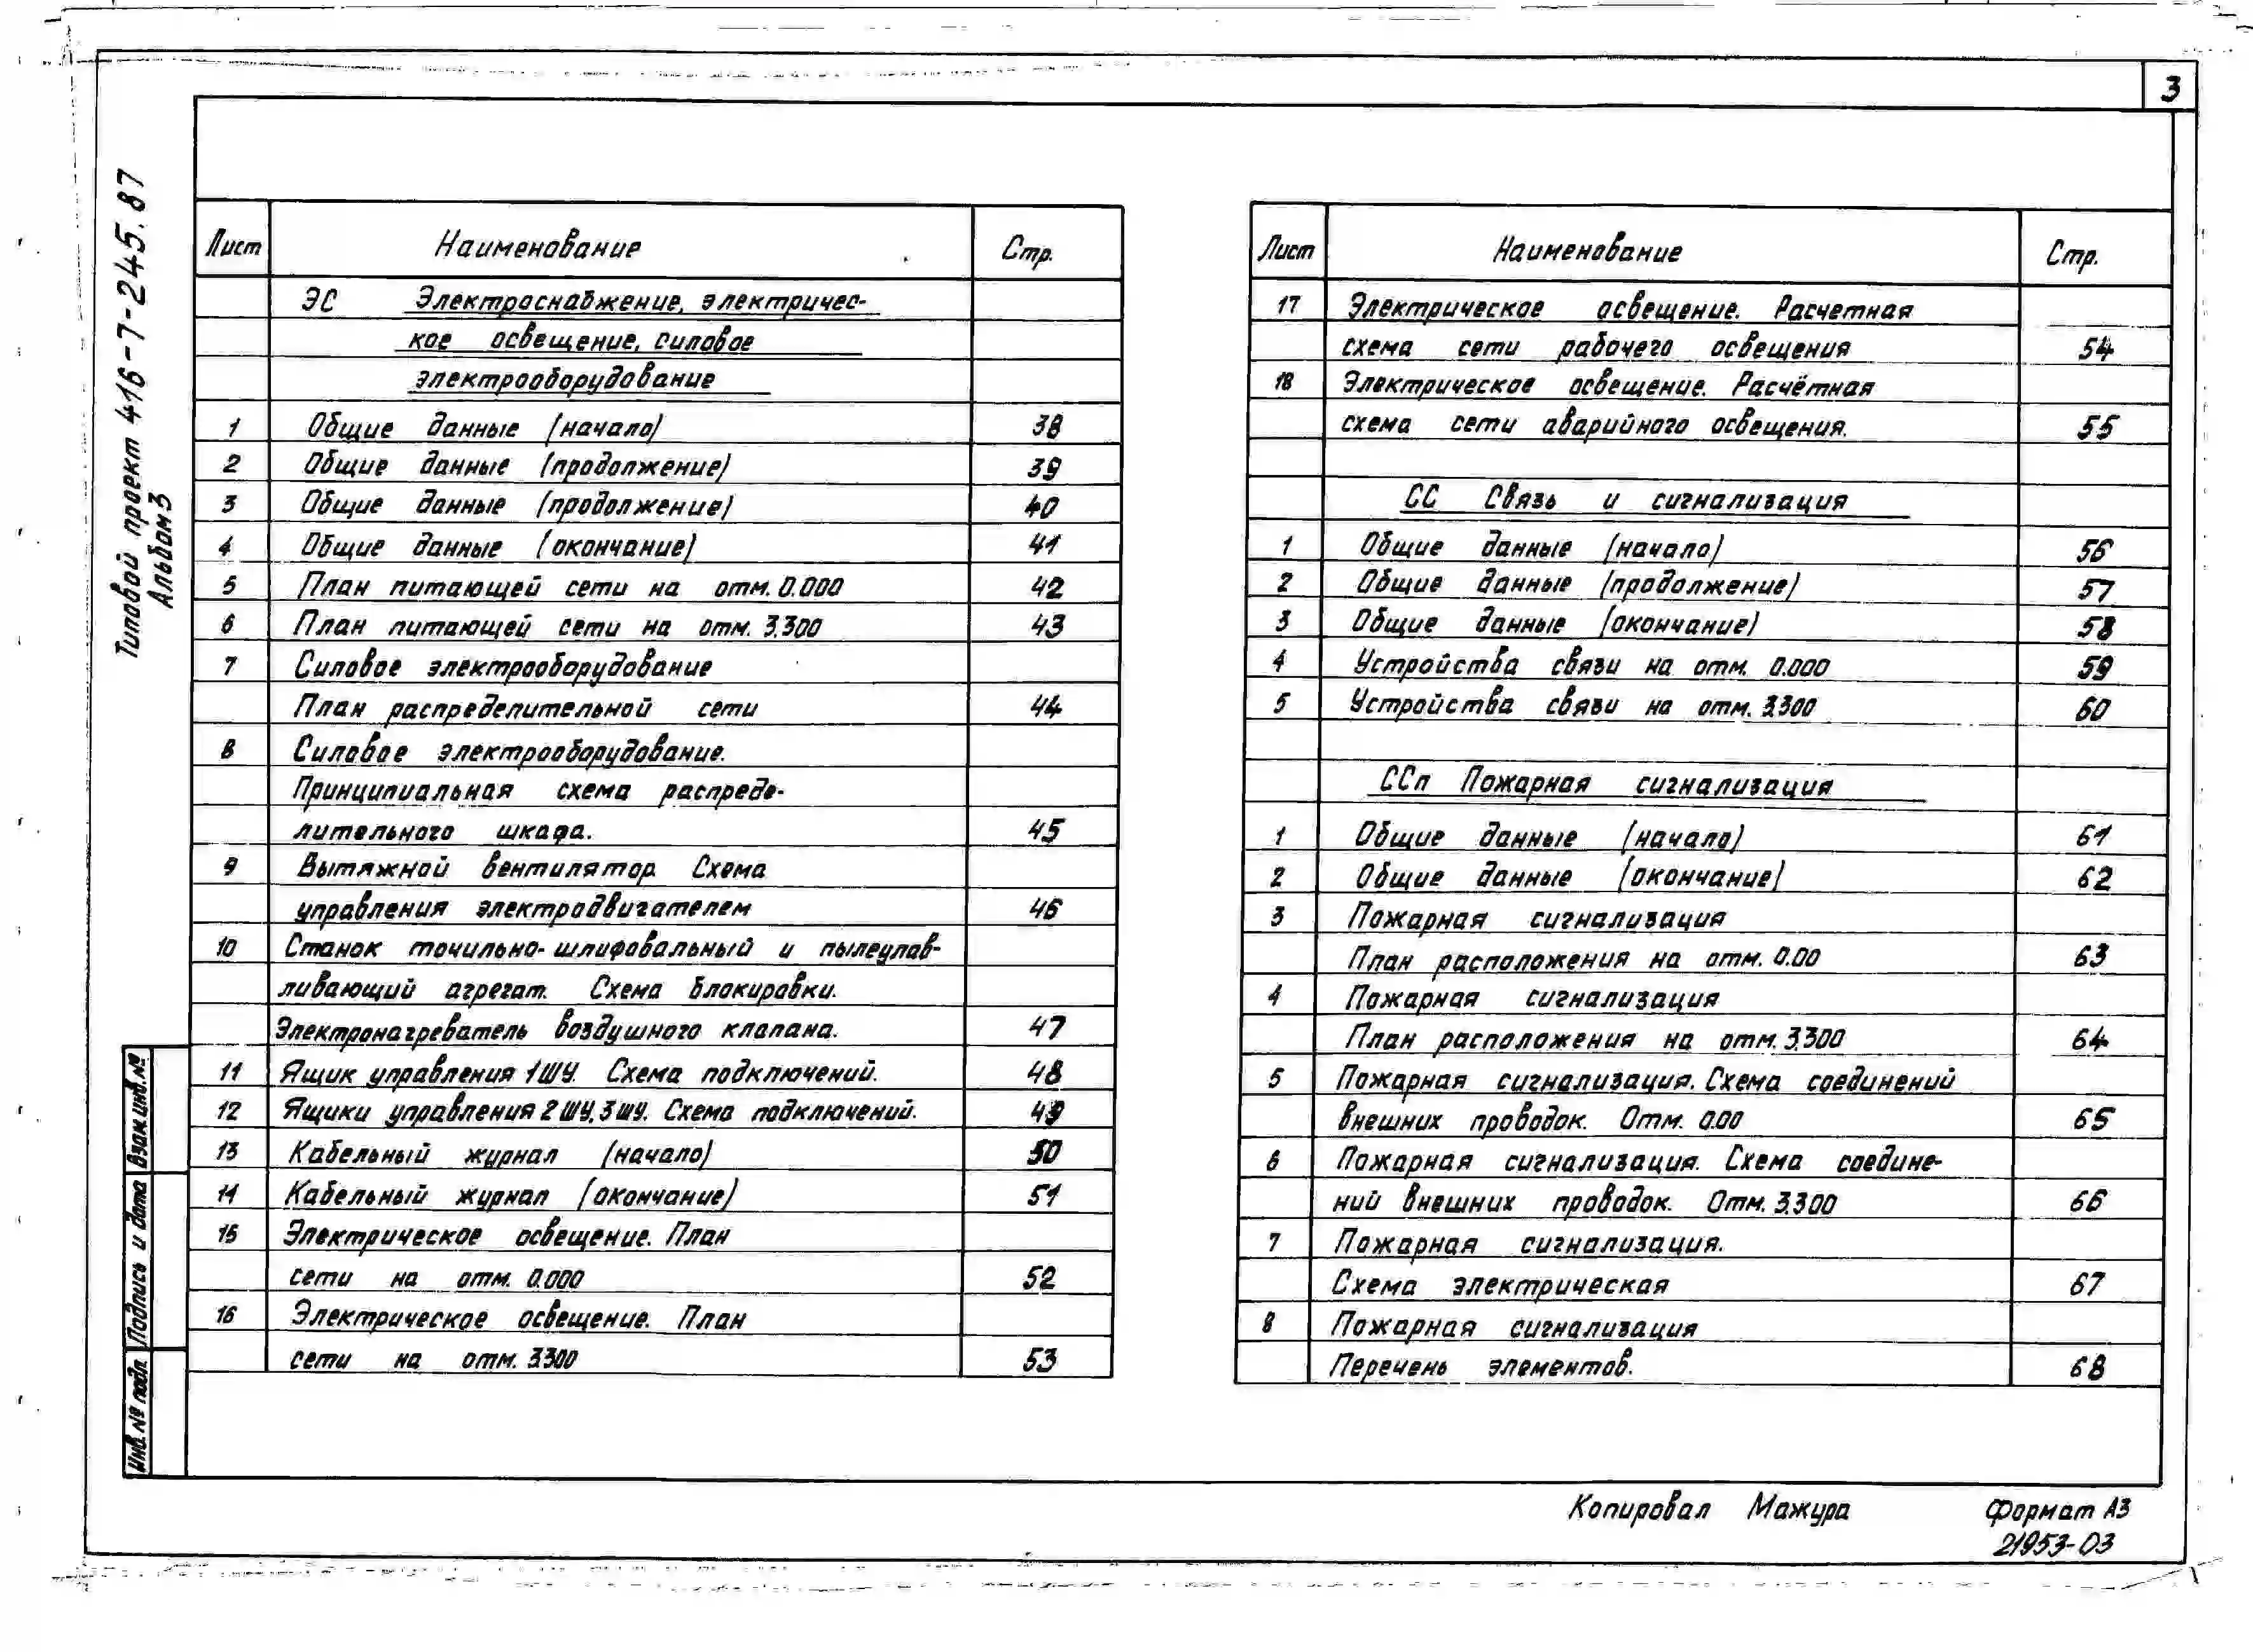 3
Типовой проект 416-7-245.87
Альбом 3
Лист Наименование Стр.
ЭС Электроснабжение, электричес-
кое освещение, силовое
электрооборудование
1 Общие данные (начало) 38
2 Общие данные (продолжение) 39
3 Общие данные (продолжение) 40
4 Общие данные (окончание) 41
5 План питающей сети на отм. 0.000 42
6 План питающей сети на отм. 3.300 43
7 Силовое электрооборудование
План распределительной сети 44
8 Силовое электрооборудование.
Принципиальная схема распреде-
лительного шкафа. 45
9 Вытяжной вентилятор. Схема
управления электродвигателем 46
10 Станок точильно-шлифовальный и пылеулав-
ливающий агрегат. Схема блокировки.
Электронагреватель воздушного клапана. 47
11 Ящик управления 1ШУ. Схема подключений. 48
12 Ящики управления 2ШУ, 3ШУ. Схема подключений. 49
13 Кабельный журнал (начало) 50
14 Кабельный журнал (окончание) 51
15 Электрическое освещение. План
сети на отм. 0.000 52
16 Электрическое освещение. План
сети на отм. 3.300 53
Лист Наименование Стр.
17 Электрическое освещение. Расчетная
схема сети рабочего освещения 54
18 Электрическое освещение. Расчётная
схема сети аварийного освещения. 55
СС Связь и сигнализация
1 Общие данные (начало) 56
2 Общие данные (продолжение) 57
3 Общие данные (окончание) 58
4 Устройства связи на отм. 0.000 59
5 Устройства связи на отм. 3.300 60
ССп Пожарная сигнализация
1 Общие данные (начало) 61
2 Общие данные (окончание) 62
3 Пожарная сигнализация
План расположения на отм. 0.00 63
4 Пожарная сигнализация
План расположения на отм. 3.300 64
5 Пожарная сигнализация. Схема соединений
внешних проводок. Отм. 0.00 65
6 Пожарная сигнализация. Схема соедине-
ний внешних проводок. Отм. 3.300 66
7 Пожарная сигнализация.
Схема электрическая 67
8 Пожарная сигнализация
Перечень элементов. 68
Взам. инв. №
Подпись и дата
Инв. № подл.
Копировал Мажура Формат А3
21953-03